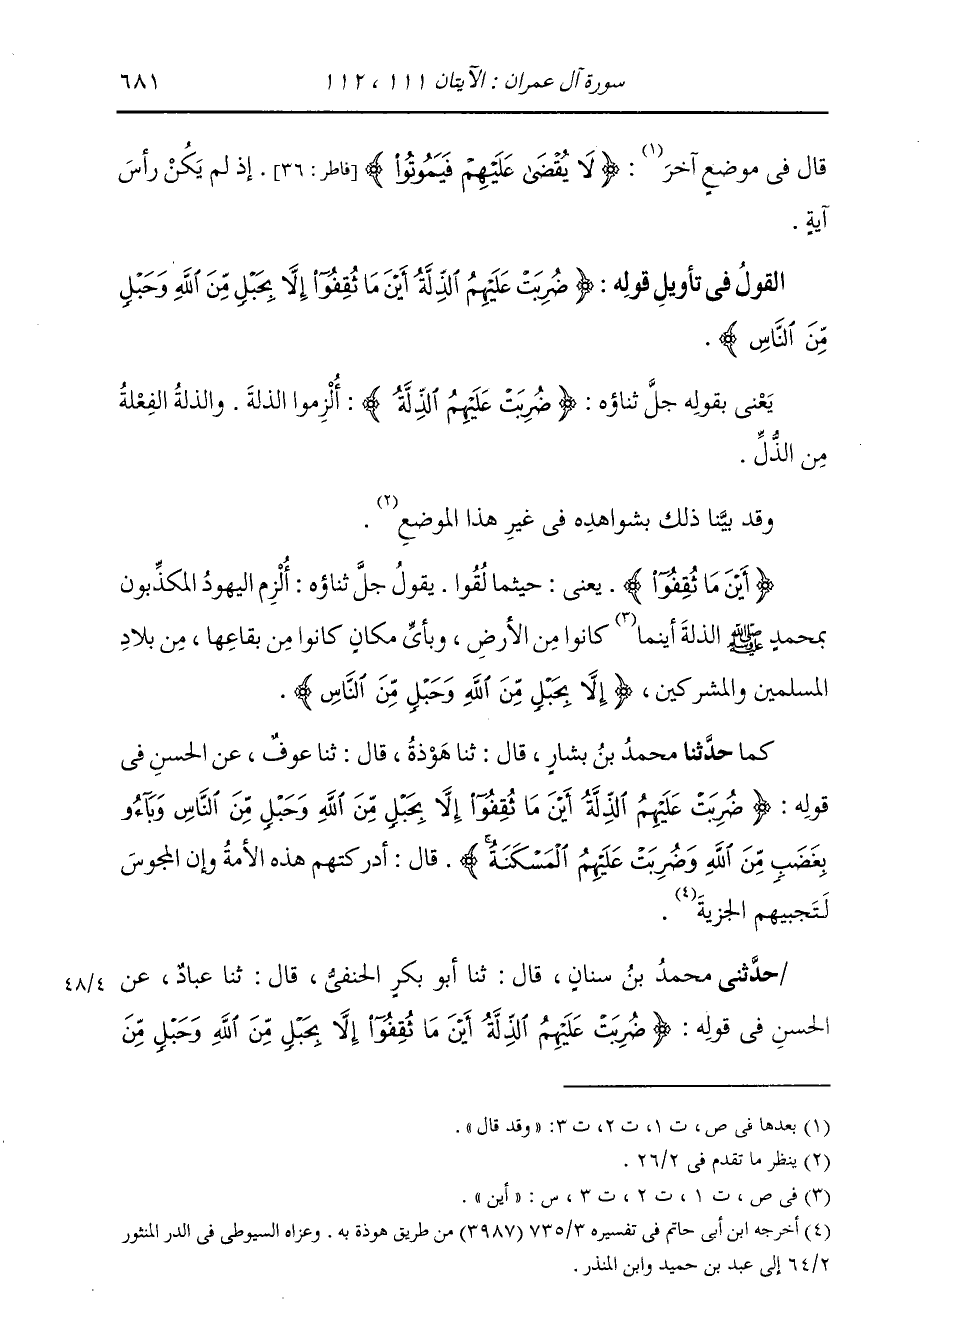 سورة آل عمران : الآيتان ١١١ ، ١١٢ ٦٨١
قال فى موضعٍ آخرَ(١) : ﴿ لَا يُقْضَىٰ عَلَيْهِمْ فَيَمُوتُوا۟ ﴾ [فاطر : ٣٦] . إذ لم يَكُنْ رأسَ
آيةٍ .
القولُ فى تأويلِ قولِه : ﴿ ضُرِبَتْ عَلَيْهِمُ ٱلذِّلَّةُ أَيْنَ مَا ثُقِفُوٓا۟ إِلَّا بِحَبْلٍ مِّنَ ٱللَّهِ وَحَبْلٍ
مِّنَ ٱلنَّاسِ ﴾ .
يَعْنى بقولِه جلَّ ثناؤه : ﴿ ضُرِبَتْ عَلَيْهِمُ ٱلذِّلَّةُ ﴾ : أُلْزِموا الذلةَ . والذلةُ الفِعْلةُ
مِن الذُّلِّ .
وقد بيَّنا ذلك بشواهدِه فى غيرِ هذا الموضعِ(٢) .
﴿ أَيْنَ مَا ثُقِفُوٓا۟ ﴾ . يعنى : حيثما لُقُوا . يقولُ جلَّ ثناؤه : أُلْزِم اليهودُ المكذِّبون
بمحمدٍ ﷺ الذلةَ أينما(٣) كانوا مِن الأرضِ ، وبأىِّ مكانٍ كانوا مِن بقاعِها ، مِن بلادِ
المسلمين والمشركين ، ﴿ إِلَّا بِحَبْلٍ مِّنَ ٱللَّهِ وَحَبْلٍ مِّنَ ٱلنَّاسِ ﴾ .
كما حدَّثنا محمدُ بنُ بشارٍ ، قال : ثنا هَوْذةُ ، قال : ثنا عوفٌ ، عن الحسنِ فى
قولِه : ﴿ ضُرِبَتْ عَلَيْهِمُ ٱلذِّلَّةُ أَيْنَ مَا ثُقِفُوٓا۟ إِلَّا بِحَبْلٍ مِّنَ ٱللَّهِ وَحَبْلٍ مِّنَ ٱلنَّاسِ وَبَآءُو
بِغَضَبٍ مِّنَ ٱللَّهِ وَضُرِبَتْ عَلَيْهِمُ ٱلْمَسْكَنَةُ ۚ ﴾ . قال : أدركتهم هذه الأمةُ وإن المجوسَ
لَتَجبيهم الجزيةَ(٤) .
/حدَّثنى محمدُ بنُ سنانٍ ، قال : ثنا أبو بكرٍ الحنفىُّ ، قال : ثنا عبادٌ ، عن ٤٨/٤
الحسنِ فى قولِه : ﴿ ضُرِبَتْ عَلَيْهِمُ ٱلذِّلَّةُ أَيْنَ مَا ثُقِفُوٓا۟ إِلَّا بِحَبْلٍ مِّنَ ٱللَّهِ وَحَبْلٍ مِّنَ
(١) بعدها فى ص، ت ١، ت ٢، ت ٣: « وقد قال » .
(٢) ينظر ما تقدم فى ٢٦/٢ .
(٣) فى ص ، ت ١ ، ت ٢ ، ت ٣ ، س : « أين » .
(٤) أخرجه ابن أبى حاتم فى تفسيره ٧٣٥/٣ (٣٩٨٧) من طريق هوذة به . وعزاه السيوطى فى الدر المنثور
٦٤/٢ إلى عبد بن حميد وابن المنذر .